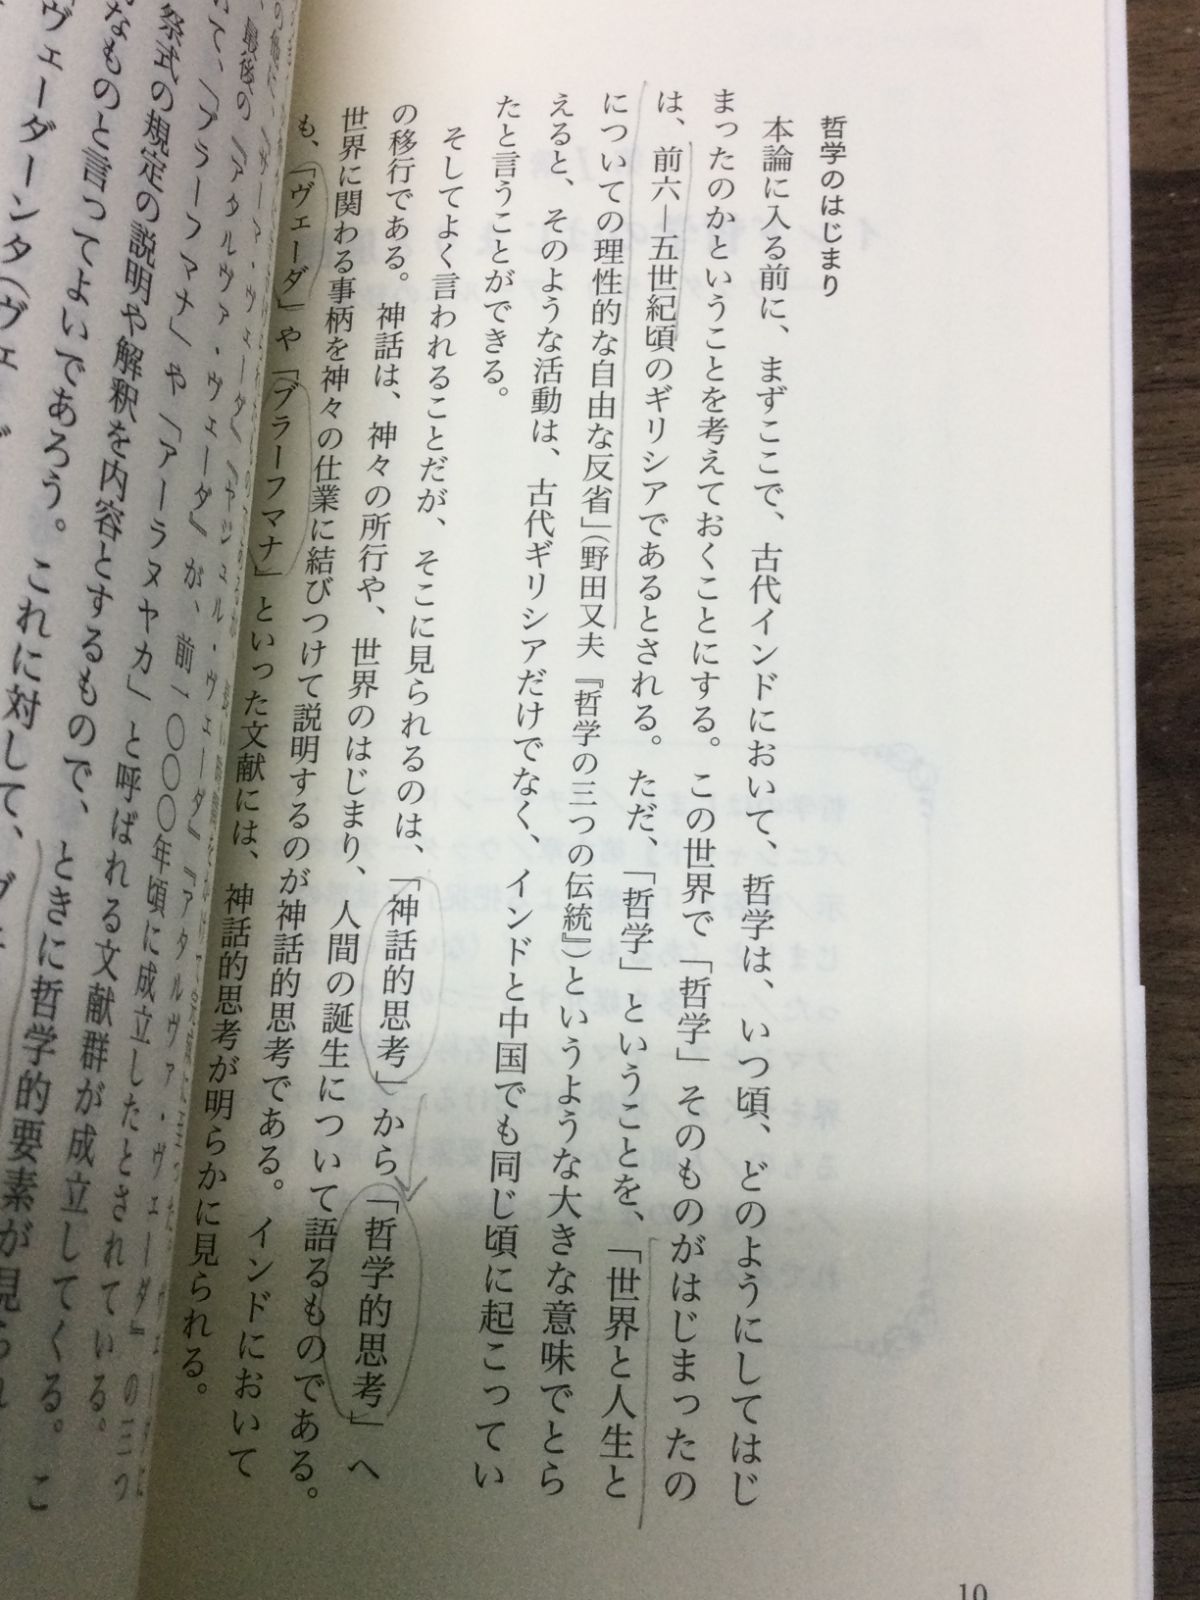 哲学のはじまり
本論に入る前に、まずここで、古代インドにおいて、哲学は、いつ頃、どのようにしてはじ
まったのかということを考えておくことにする。この世界で「哲学」そのものがはじまったの
は、前六―五世紀頃のギリシアであるとされる。ただ、「哲学」ということを、「世界と人生と
についての理性的な自由な反省」(野田又夫『哲学の三つの伝統』)というような大きな意味でとら
えると、そのような活動は、古代ギリシアだけでなく、インドと中国でも同じ頃に起こってい
たと言うことができる。
そしてよく言われることだが、そこに見られるのは、「神話的思考」から「哲学的思考」へ
の移行である。神話は、神々の所行や、世界のはじまり、人間の誕生について語るものである。
世界に関わる事柄を神々の仕業に結びつけて説明するのが神話的思考である。インドにおいて
も、「ヴェーダ」や「ブラーフマナ」といった文献には、神話的思考が明らかに見られる。
最後の『アタルヴァ・ヴェーダ』が、前一〇〇〇年頃に成立したとされている。
て、「ブラーフマナ」や「アーラヌヤカ」と呼ばれる文献群が成立してくる。こ
祭式の規定の説明や解釈を内容とするもので、ときに哲学的要素が見られ
なものと言ってよいであろう。これに対して、
ヴェーダーンタ(ヴェ
10